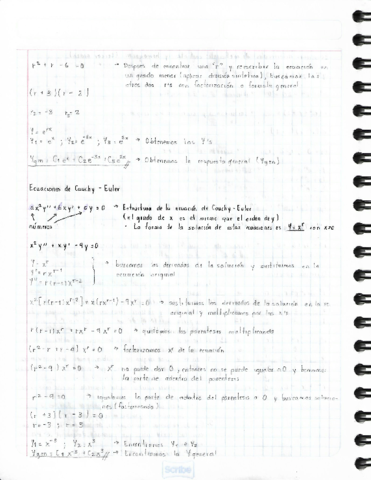 r² + r - 6 = 0 → Después de encontrar una "r" y reescribir la ecuación en
un grado menor (aplicar división sintética), buscamos las
otras dos r's con factorización o fórmula general
(r + 3)(r - 2)
r₂ = -3 r₃ = 2
y = e^rx
y₁ = e^x ; y₂ = e^-3x ; y₃ = e^2x → Obtenemos las y's
y gen = C₁e^x + C₂e^-3x + C₃e^2x → Obtenemos la respuesta general (y gen)
Ecuaciones de Cauchy - Euler
ax²y'' + bxy' + cy = 0 → Estructura de la ecuación de Cauchy - Euler
(el grado de x es el mismo que el orden de y)
números - La forma de la solución de estas ecuaciones es y = x^r con x>0
x²y'' + xy' - 9y = 0
y = x^r
y' = rx^r-1 → buscamos las derivadas de la solución y sustituimos en la
y'' = r(r-1)x^r-2 ecuación original
x²[r(r-1)x^r-2] + x(rx^r-1) - 9x^r = 0 → sustituimos las derivadas de la solución en la ec
original y multiplicamos por las x's
r(r-1)x^r + rx^r - 9x^r = 0 → quitamos los paréntesis multiplicando
(r² - r + r - 9) x^r = 0 → factorizamos x^r de la ecuación
(r² - 9) x^r = 0 → x^r no puede dar 0, entonces no se puede igualar a 0 y buscamos
la parte de adentro del paréntesis
r² - 9 = 0 → igualamos la parte de adentro del paréntesis a 0 y buscamos
(factorizando)
(r + 3)(r - 3) = 0
r = -3 ; r = 3
y₁ = x^-3 ; y₂ = x³ → Encontramos y₁ e y₂
y gen = C₁x^-3 + C₂x³ → Encontramos la y general
scribe